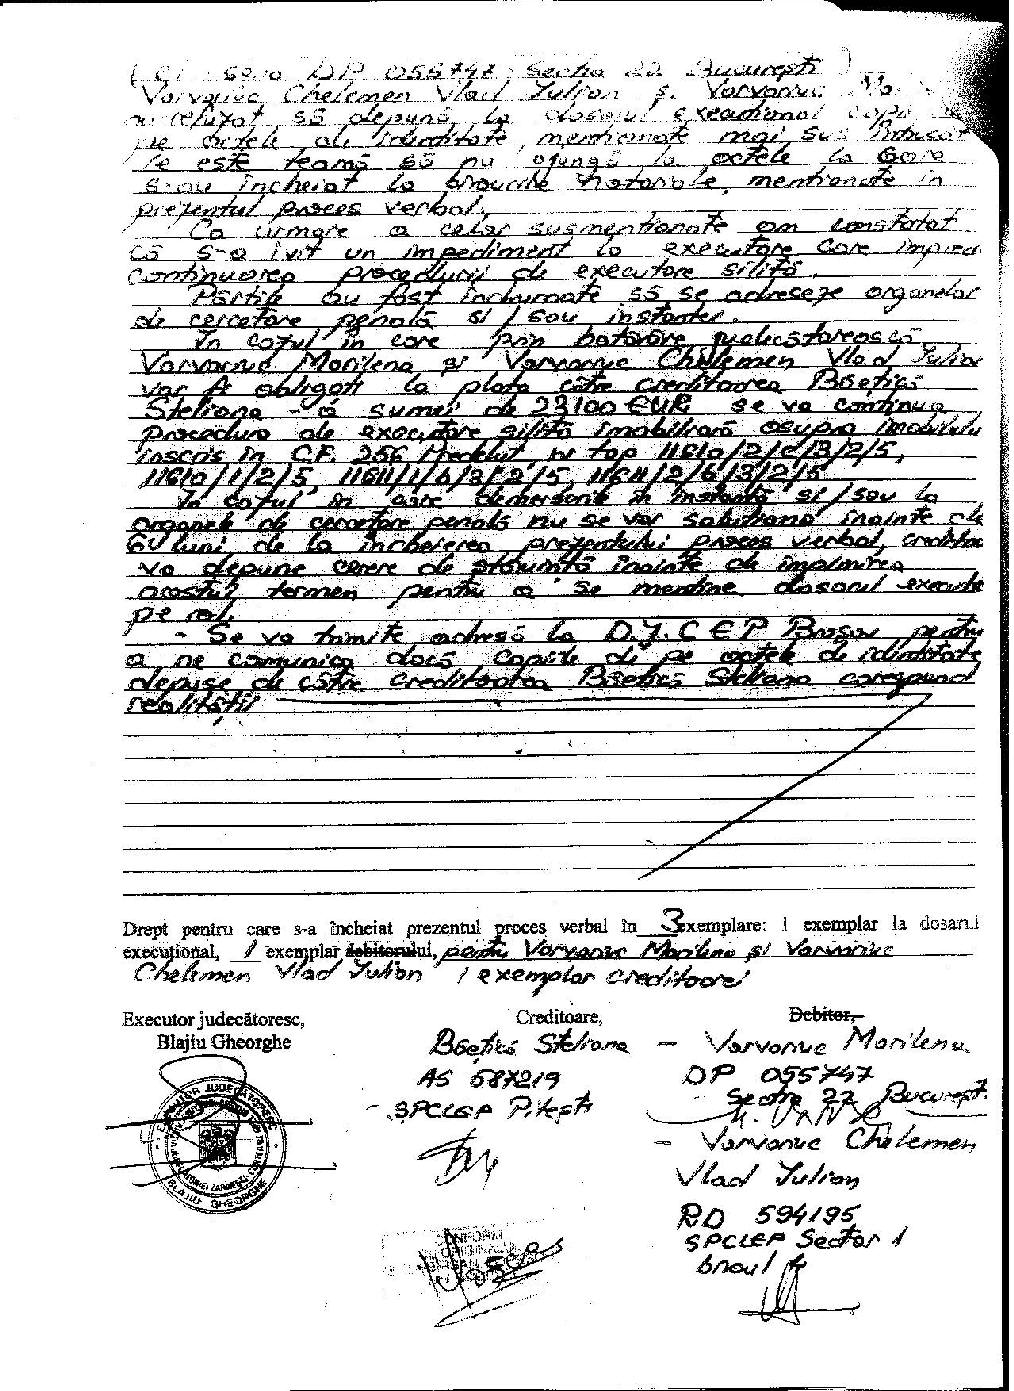 DP 055747 Secția 22 București
Varvariuc Chelemen Vlad Iulian și Varvariuc
au refuzat să depună la dosarul execuțional copii
pe actele de identitate, menționate mai sus întrucât
le este teamă să nu ajungă la actele la
s-au încheiat la birourile notariale, menționate în
prezentul proces verbal.
Ca urmare a celor susmenționate am constatat
că s-a ivit un impediment la executare care împied
continuarea procedurii de executare silită.
Părțile au fost îndrumate să se adreseze organelor
de cercetare penală și/sau instanței.
În cazul în care prin hotărâre judecătorească
Varvariuc Marilena și Varvariuc Chelemen Vlad Iulian
vor fi obligați la plata către creditoarea Băețică
Steliana - a sumei de 23100 EUR se va continua
procedura de executare silită imobiliară asupra imobilului
înscris în C.F. 256 Predeluț, nr top 11610/2/c/3/2/5,
11610/1/2/5, 11611/1/6/3/2/5, 11611/2/6/3/2/5
În cazul în care demersurile în instanță și/sau la
organele de cercetare penală nu se vor soluționa înainte de
6 luni, de la încheierea prezentului proces verbal, creditoa
va depune cerere de stăruință înainte de împlinirea
acestui termen pentru a se menține dosarul execuțio
pe rol.
- Se va trimite adresă la D.J.C.E.P Brașov pentru
a ne comunica dacă copiile de pe actele de identitate
depuse de către creditoarea Băețică Steliana corespund
realității
Drept pentru care s-a încheiat prezentul proces verbal în 3 exemplare: 1 exemplar la dosarul
execuțional, 1 exemplar debitorului, pentru Varvariuc Marilena și Varvariuc
Chelemen Vlad Iulian 1 exemplar creditoarei
Executor judecătoresc,
Blajiu Gheorghe
Creditoare,
Băețică Steliana
AS 687219
- SPCLEP Pitești
Debitor,
- Varvariuc Marilena
DP 055747
Secția 22 București
- Varvariuc Chelemen
Vlad Iulian
RD 594195
SPCLEP Sector 1
biroul 4
BLAJIU GHEORGHE